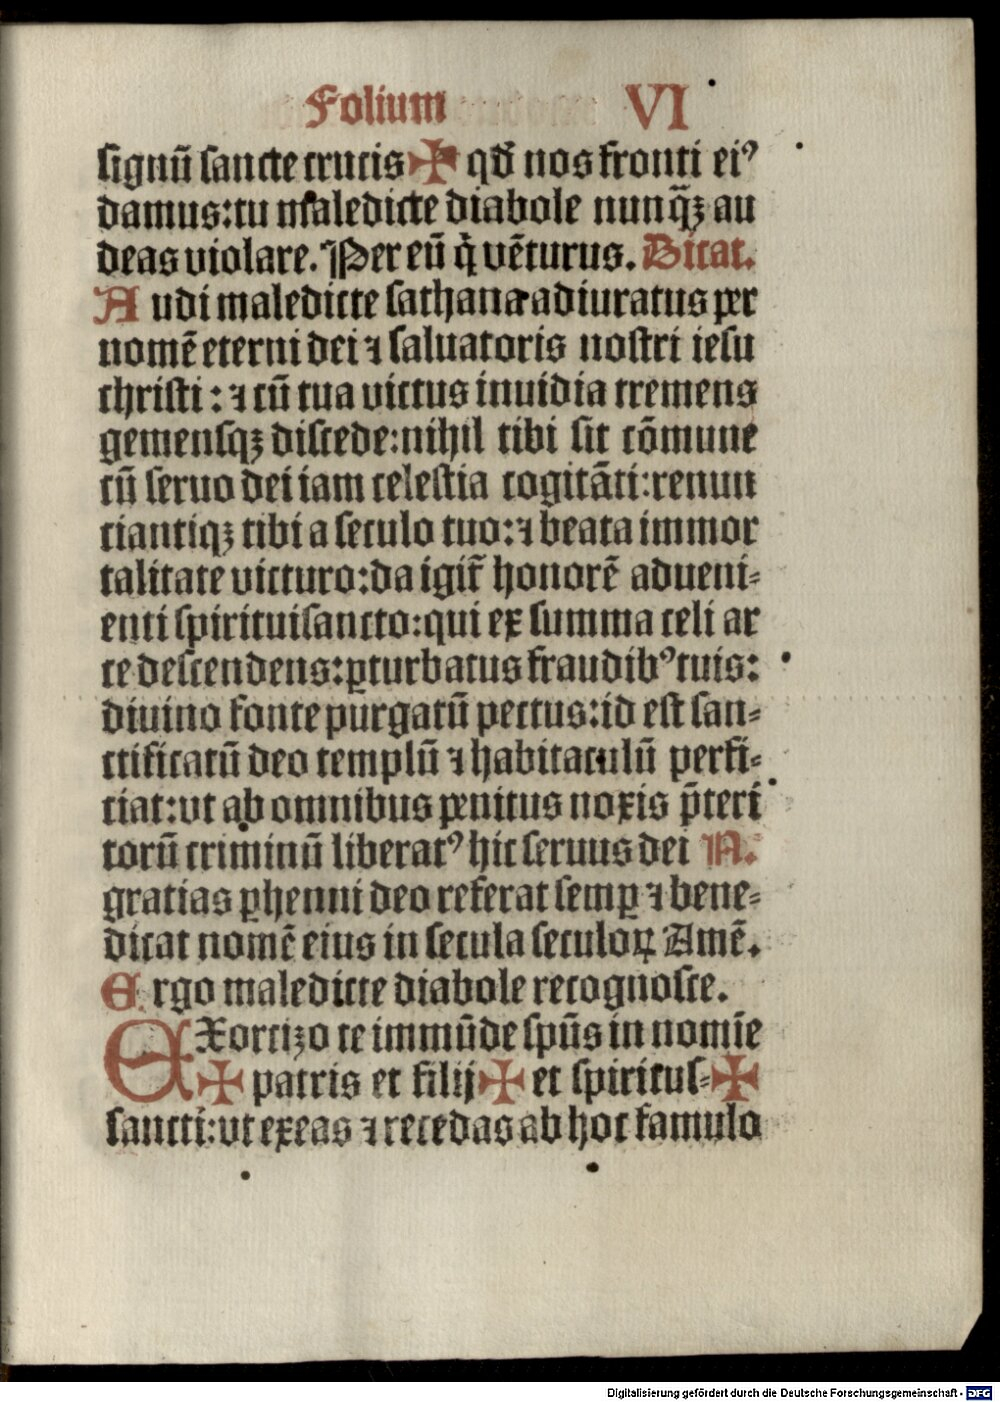 Folium VI
signū sancte crucis✠ qđ nos fronti eiꝰ
damus:tu maledicte diabole nunq̄ꝫ au
deas violare. Per eū q̇ vēturus. Dicat.
Audi maledicte sathana adiuratus per
nomē eterni dei ⁊ saluatoris nostri iesu
christi : ⁊ cū tua victus inuidia tremens
gemensqꝫ discede:nihil tibi sit cōmune
cū seruo dei iam celestia cogitāti:renun
tiantiqꝫ tibi a seculo tuo:⁊ beata immor
talitate victuro:da igit̄ honorē adueni⸗
enti spirituisancto:qui ex summa celi ar
ce descendens:ꝑturbatus fraudibꝰ tuis:
diuino fonte purgatū pectus:id est san⸗
ctificatū deo templū ⁊ habitaculū perfi⸗
ciat:vt ab omnibus penitus noxis p̄teri
torū criminū liberatꝰ hic seruus dei N.
gratias ꝑhenni deo referat semꝑ ⁊ bene⸗
dicat nomē eius in secula seculoꝝ Amē.
Ergo maledicte diabole recognosce.
EXorcizo te immūde sp̄us in nomīe
✠ patris et filij✠ et spiritus⸗✠
sancti:vt exeas ⁊ recedas ab hoc famulo
Digitalisierung gefördert durch die Deutsche Forschungsgemeinschaft - DFG